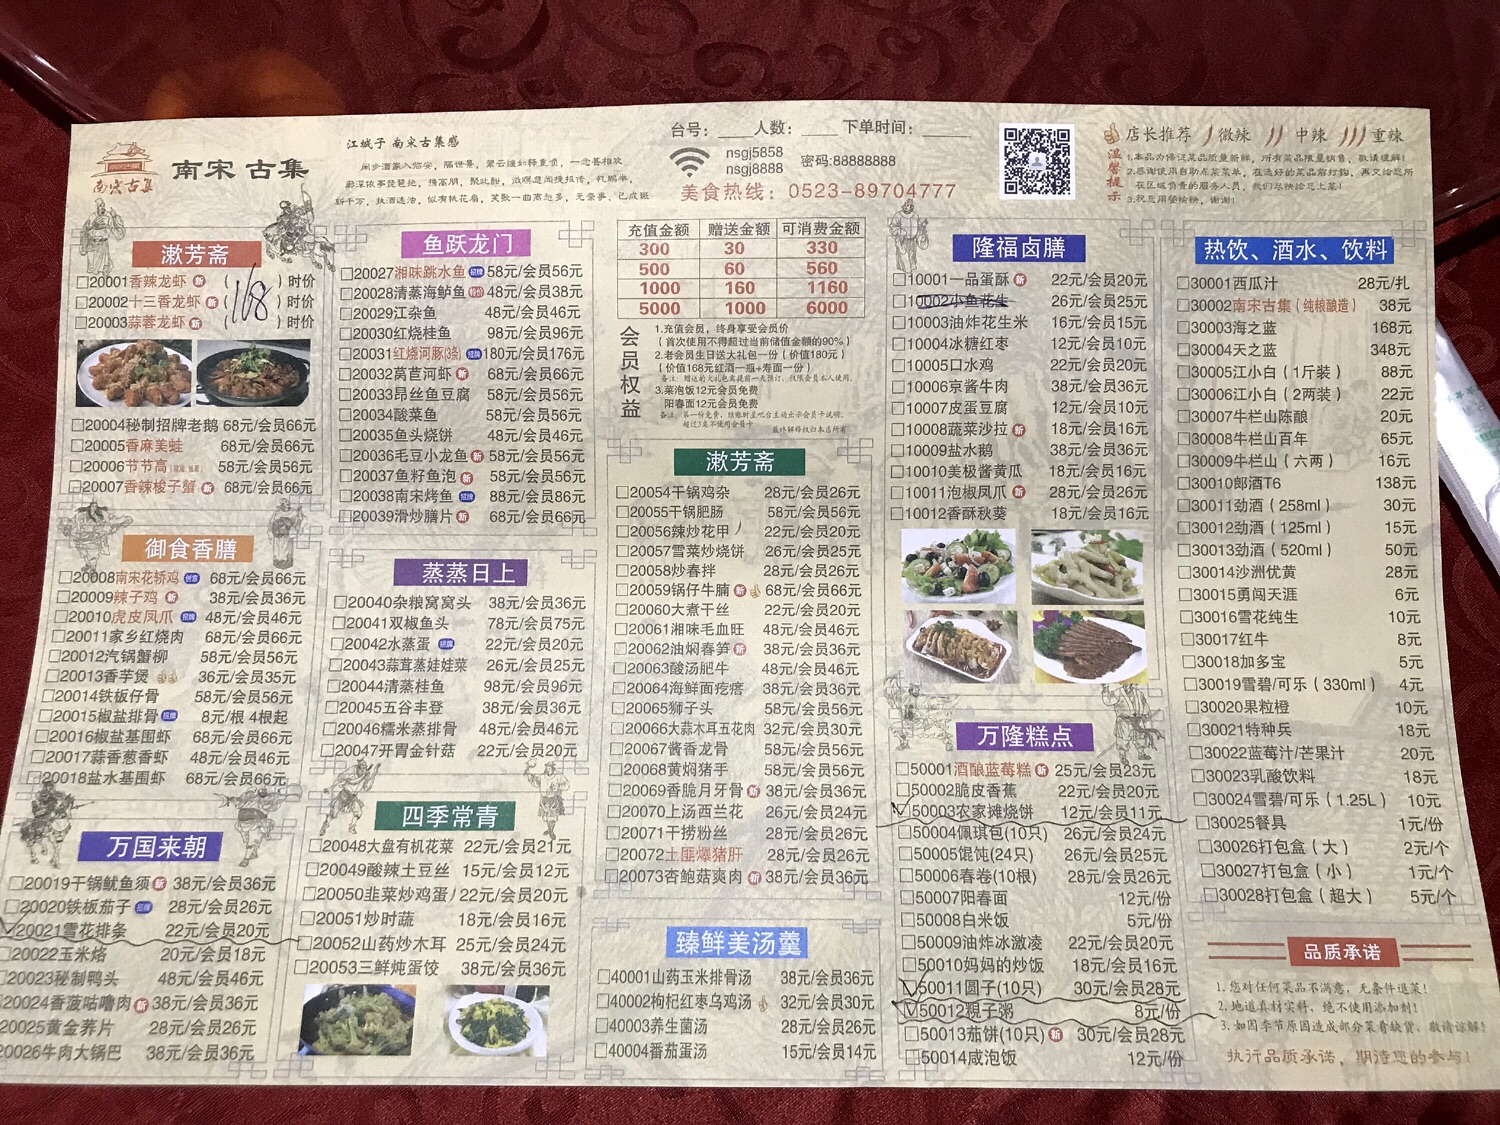 南宋 古集
南宋古集
江城子 南宋古集感
台号：____人数：____下单时间：______
nsgj5858
nsgj8888
密码:88888888
美食热线：0523-89704777
店长推荐 微辣 中辣 重辣
温馨提示
3.祝您用餐愉快，谢谢!
漱芳斋
20001香辣龙虾 新 ( ) 时价
20002十三香龙虾 新 ( 168 ) 时价
20003蒜蓉龙虾 新 ( ) 时价
20004秘制招牌老鹅 68元/会员66元
20005香麻美蛙 68元/会员66元
20006节节高 58元/会员56元
20007香辣梭子蟹 新 68元/会员66元
御食香膳
20008南宋花轿鸡 创意 68元/会员66元
20009辣子鸡 新 38元/会员36元
20010虎皮凤爪 招牌 48元/会员46元
20011家乡红烧肉 68元/会员66元
20012汽锅蟹柳 58元/会员56元
20013香芋煲 36元/会员35元
20014铁板仔骨 58元/会员56元
20015椒盐排骨 招牌 8元/根 4根起
20016椒盐基围虾 68元/会员66元
20017蒜香葱香虾 48元/会员46元
20018盐水基围虾 68元/会员66元
万国来朝
20019干锅鱿鱼须 新 38元/会员36元
20020铁板茄子 招牌 28元/会员26元
20021雪花排条 22元/会员20元
20022玉米烙 20元/会员18元
20023秘制鸭头 48元/会员46元
20024香菠咕噜肉 新 38元/会员36元
20025黄金荞片 28元/会员26元
20026牛肉大锅巴 38元/会员36元
鱼跃龙门
20027湘味跳水鱼 招牌 58元/会员56元
20028清蒸海鲈鱼 特价 48元/会员38元
20029江杂鱼 48元/会员46元
20030红烧桂鱼 98元/会员96元
20031红烧河豚(3条) 招牌 180元/会员176元
20032莴苣河虾 新 68元/会员66元
20033昂丝鱼豆腐 58元/会员56元
20034酸菜鱼 58元/会员56元
20035鱼头烧饼 48元/会员46元
20036毛豆小龙鱼 新 58元/会员56元
20037鱼籽鱼泡 新 58元/会员56元
20038南宋烤鱼 招牌 88元/会员86元
20039滑炒膳片 新 68元/会员66元
蒸蒸日上
20040杂粮窝窝头 38元/会员36元
20041双椒鱼头 78元/会员75元
20042水蒸蛋 招牌 22元/会员20元
20043蒜茸蒸娃娃菜 26元/会员25元
20044清蒸桂鱼 98元/会员96元
20045五谷丰登 38元/会员36元
20046糯米蒸排骨 48元/会员46元
20047开胃金针菇 22元/会员20元
四季常青
20048大盘有机花菜 22元/会员21元
20049酸辣土豆丝 15元/会员12元
20050韭菜炒鸡蛋 22元/会员20元
20051炒时蔬 18元/会员16元
20052山药炒木耳 25元/会员24元
20053三鲜炖蛋饺 38元/会员36元
充值金额 赠送金额 可消费金额
300 30 330
500 60 560
1000 160 1160
5000 1000 6000
会员权益
1.充值会员，终身享受会员价
(首次使用不得超过当前储值金额的90%)
2.老会员生日送大礼包一份 (价值180元)
(价值168元红酒一瓶+寿面一份)
3.菜泡饭12元会员免费
阳春面12元会员免费
最终解释权归本店所有
漱芳斋
20054干锅鸡杂 28元/会员26元
20055干锅肥肠 58元/会员56元
20056辣炒花甲 22元/会员20元
20057雪菜炒烧饼 26元/会员25元
20058炒春拌 28元/会员26元
20059锅仔牛腩 新 68元/会员66元
20060大煮干丝 22元/会员20元
20061湘味毛血旺 48元/会员46元
20062油焖春笋 新 38元/会员36元
20063酸汤肥牛 48元/会员46元
20064海鲜面疙瘩 38元/会员36元
20065狮子头 58元/会员56元
20066大蒜木耳五花肉 32元/会员30元
20067酱香龙骨 58元/会员56元
20068黄焖猪手 58元/会员56元
20069香脆月牙骨 新 38元/会员36元
20070上汤西兰花 26元/会员24元
20071干捞粉丝 28元/会员26元
20072土匪爆猪肝 28元/会员26元
20073杏鲍菇爽肉 新 38元/会员36元
臻鲜美汤羹
40001山药玉米排骨汤 38元/会员36元
40002枸杞红枣乌鸡汤 32元/会员30元
40003养生菌汤 28元/会员26元
40004番茄蛋汤 15元/会员14元
隆福卤膳
10001一品蛋酥 新 22元/会员20元
10002小鱼花生 26元/会员25元
10003油炸花生米 16元/会员15元
10004冰糖红枣 12元/会员10元
10005口水鸡 22元/会员20元
10006京酱牛肉 38元/会员36元
10007皮蛋豆腐 12元/会员10元
10008蔬菜沙拉 新 18元/会员16元
10009盐水鹅 38元/会员36元
10010美极酱黄瓜 18元/会员16元
10011泡椒凤爪 新 28元/会员26元
10012香酥秋葵 18元/会员16元
万隆糕点
50001酒酿蓝莓糕 新 25元/会员23元
50002脆皮香蕉 22元/会员20元
50003农家摊烧饼 12元/会员11元
50004佩琪包(10只) 26元/会员24元
50005馄饨(24只) 26元/会员25元
50006春卷(10根) 28元/会员26元
50007阳春面 12元/份
50008白米饭 5元/份
50009油炸冰激凌 22元/会员20元
50010妈妈的炒饭 18元/会员16元
50011圆子(10只) 30元/会员28元
50012糁子粥 8元/份
50013茄饼(10只) 新 30元/会员28元
50014咸泡饭 12元/份
热饮、酒水、饮料
30001西瓜汁 28元/扎
30002南宋古集 (纯粮酿造) 38元
30003海之蓝 168元
30004天之蓝 348元
30005江小白 (1斤装) 88元
30006江小白 (2两装) 22元
30007牛栏山陈酿 20元
30008牛栏山百年 65元
30009牛栏山 (六两) 16元
30010郎酒T6 138元
30011劲酒 (258ml) 30元
30012劲酒 (125ml) 15元
30013劲酒 (520ml) 50元
30014沙洲优黄 28元
30015勇闯天涯 6元
30016雪花纯生 10元
30017红牛 8元
30018加多宝 5元
30019雪碧/可乐 (330ml) 4元
30020果粒橙 10元
30021特种兵 18元
30022蓝莓汁/芒果汁 20元
30023乳酸饮料 18元
30024雪碧/可乐 (1.25L) 10元
30025餐具 1元/份
30026打包盒 (大) 2元/个
30027打包盒 (小) 1元/个
30028打包盒 (超大) 5元/个
品质承诺
1. 您对任何菜品不满意，无条件退菜!
2. 地道真材实料，绝不使用添加剂!
3. 如因季节原因造成部分菜肴缺货，敬请谅解!
执行品质承诺，期待您的参与!